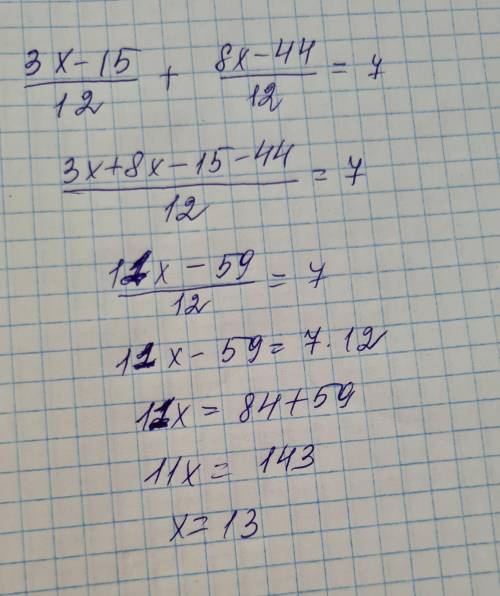 (3x-15)/12 + (8x-44)/12 = 7
(3x+8x-15-44)/12 = 7
(11x-59)/12 = 7
11x-59=7·12
11x=84+59
11x=143
x=13